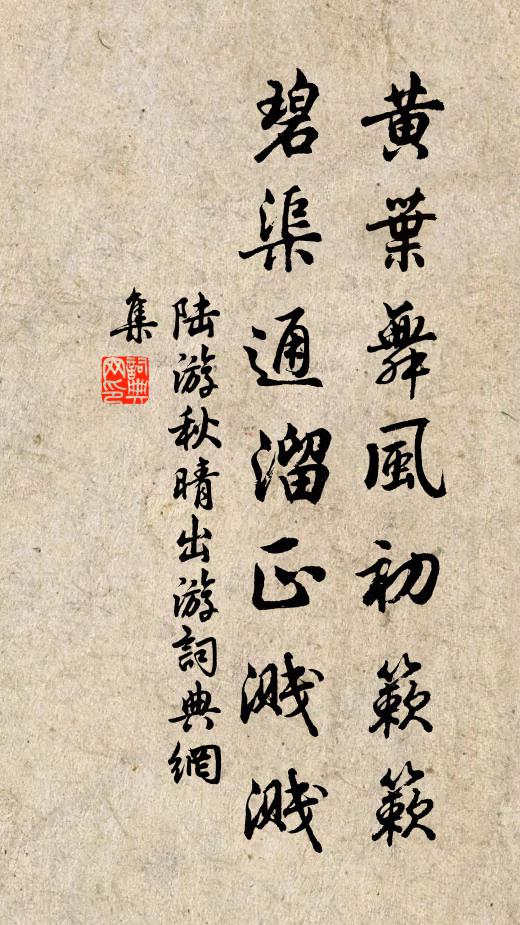 黃葉舞風初簌簌
碧渠通溜正濺濺
陸游秋晴出游詞典網
集
詞典
网印